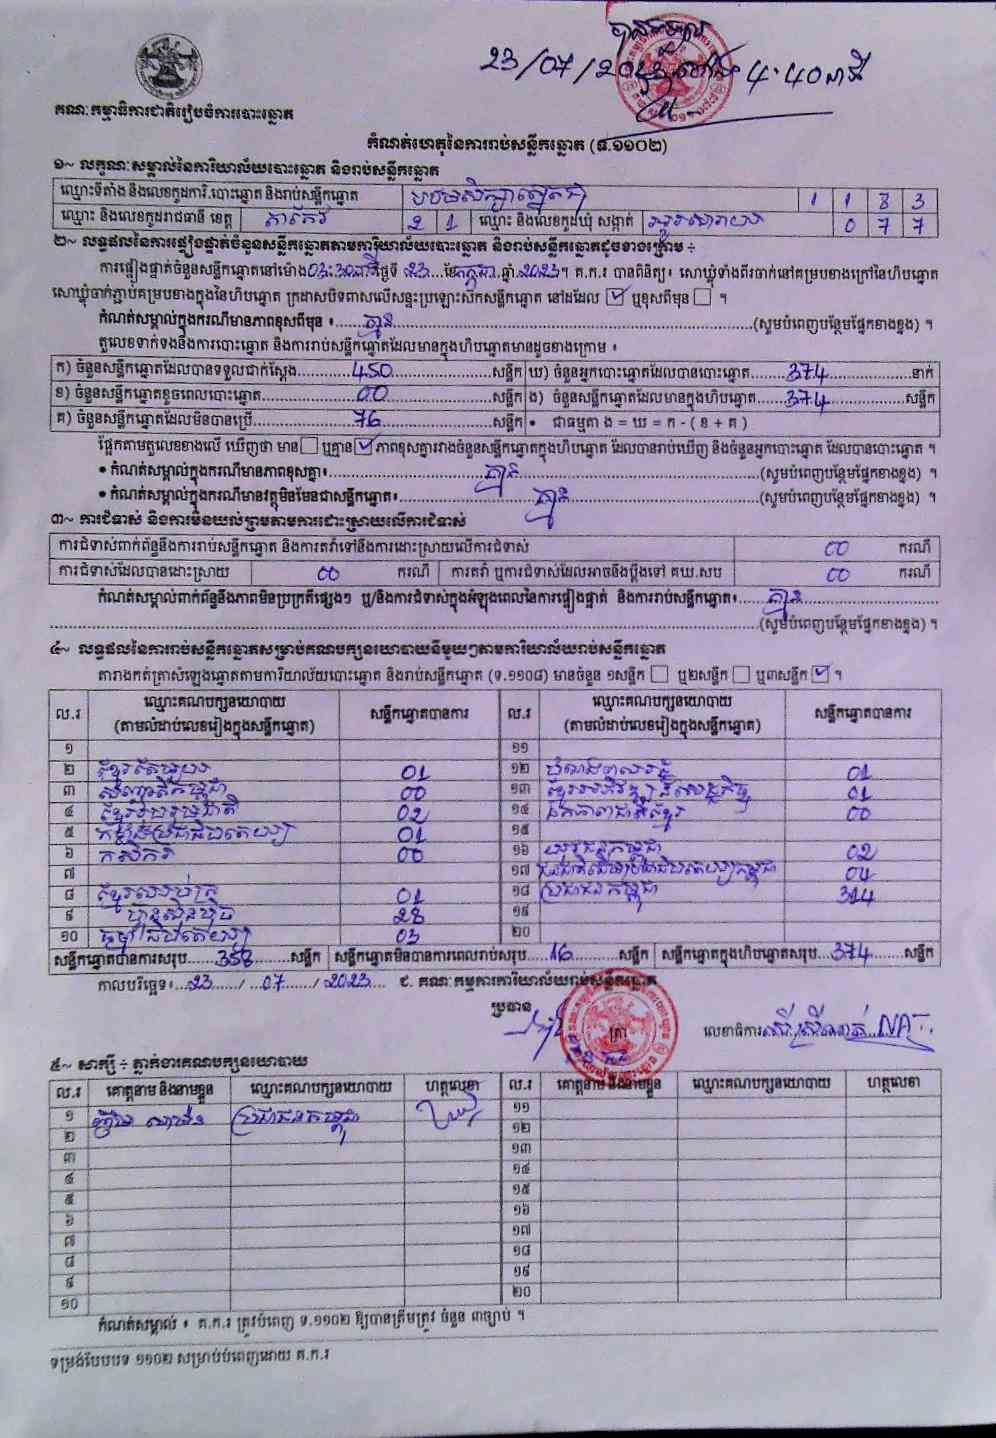 បានទទួល
23/07/2023 ម៉ោង 4:40 នាទី
គណៈកម្មាធិការជាតិរៀបចំការបោះឆ្នោត
កំណត់ហេតុនៃការរាប់សន្លឹកឆ្នោត (ទ.១១០២)
១~ លក្ខណៈសម្គាល់នៃការិយាល័យបោះឆ្នោត និងរាប់សន្លឹកឆ្នោត
ឈ្មោះទីតាំង និងលេខកូដការិ.បោះឆ្នោត និងរាប់សន្លឹកឆ្នោត បឋមសិក្សា 1 1 8 3
ឈ្មោះ និងលេខកូដរាជធានី ខេត្ត តាកែវ 2 1 ឈ្មោះ និងលេខកូដឃុំ សង្កាត់ 0 7 7
២~ លទ្ធផលនៃការផ្ទៀងផ្ទាត់ចំនួនសន្លឹកឆ្នោតតាមការិយាល័យបោះឆ្នោត និងរាប់សន្លឹកឆ្នោតដូចខាងក្រោម ÷
ការផ្ទៀងផ្ទាត់ចំនួនសន្លឹកឆ្នោតនៅម៉ោង 03:30នាទី ថ្ងៃទី 23 ...ខែ កក្កដា .ឆ្នាំ. 2023 ។ គ.ក.រ បានពិនិត្យ៖ សោឃ្លុំទាំងពីរចាក់នៅគម្របខាងក្រៅនៃហិបឆ្នោត
សោឃ្លុំចាក់ភ្ជាប់គម្របខាងក្នុងនៃហិបឆ្នោត ក្រដាសបិទពាសលើសន្ទះប្រឡោះស៊កសន្លឹកឆ្នោត នៅដដែល ☑ ឬខុសពីមុន ☐ ។
កំណត់សម្គាល់ក្នុងករណីមានភាពខុសពីមុន ៖ គ្មាន (សូមបំពេញបន្ថែមផ្នែកខាងខ្នង) ។
តួលេខទាក់ទងនឹងការបោះឆ្នោត និងការរាប់សន្លឹកឆ្នោតដែលមានក្នុងហិបឆ្នោតមានដូចខាងក្រោម ៖
ក) ចំនួនសន្លឹកឆ្នោតដែលបានទទួលជាក់ស្តែង 450 សន្លឹក ឃ) ចំនួនអ្នកបោះឆ្នោតដែលបានបោះឆ្នោត 374 នាក់
ខ) ចំនួនសន្លឹកឆ្នោតខូចពេលបោះឆ្នោត 00 សន្លឹក ង) ចំនួនសន្លឹកឆ្នោតដែលមានក្នុងហិបឆ្នោត 374 សន្លឹក
គ) ចំនួនសន្លឹកឆ្នោតដែលមិនបានប្រើ 76 សន្លឹក • ជាធម្មតា ង = ឃ = ក - ( ខ + គ )
ផ្អែកតាមតួលេខខាងលើ ឃើញថា មាន ☐ ឬគ្មាន ☑ ភាពខុសគ្នារវាងចំនួនសន្លឹកឆ្នោតក្នុងហិបឆ្នោត ដែលបានរាប់ឃើញ និងចំនួនអ្នកបោះឆ្នោត ដែលបានបោះឆ្នោត ។
• កំណត់សម្គាល់ក្នុងករណីមានភាពខុសគ្នា៖ គ្មាន (សូមបំពេញបន្ថែមផ្នែកខាងខ្នង) ។
• កំណត់សម្គាល់ក្នុងករណីមានវត្ថុមិនមែនជាសន្លឹកឆ្នោត៖ គ្មាន (សូមបំពេញបន្ថែមផ្នែកខាងខ្នង) ។
៣~ ការជំទាស់ និងការមិនយល់ព្រមតាមការដោះស្រាយលើការជំទាស់
ការជំទាស់ពាក់ព័ន្ធនឹងការរាប់សន្លឹកឆ្នោត និងការតវ៉ាទៅនឹងការដោះស្រាយលើការជំទាស់ 00 ករណី
ការជំទាស់ដែលបានដោះស្រាយ 00 ករណី ការតវ៉ា ឬការជំទាស់ដែលអាចនឹងប្តឹងទៅ គឃ.សប 00 ករណី
កំណត់សម្គាល់ពាក់ព័ន្ធនឹងភាពមិនប្រក្រតីផ្សេងៗ ឬ/និងការជំទាស់ក្នុងអំឡុងពេលនៃការផ្ទៀងផ្ទាត់ និងការរាប់សន្លឹកឆ្នោត៖ គ្មាន
(សូមបំពេញបន្ថែមផ្នែកខាងខ្នង) ។
៤~ លទ្ធផលនៃការរាប់សន្លឹកឆ្នោតសម្រាប់គណបក្សនយោបាយនីមួយៗតាមការិយាល័យរាប់សន្លឹកឆ្នោត
តារាងកត់ត្រាសំឡេងឆ្នោតតាមការិយាល័យបោះឆ្នោត និងរាប់សន្លឹកឆ្នោត (ទ.១១០៨) មានចំនួន ១សន្លឹក ☐ ឬ២សន្លឹក ☐ ឬ៣សន្លឹក ☑ ។
ល.រ ឈ្មោះគណបក្សនយោបាយ សន្លឹកឆ្នោតបានការ ល.រ ឈ្មោះគណបក្សនយោបាយ សន្លឹកឆ្នោតបានការ
(តាមលំដាប់លេខរៀងក្នុងសន្លឹកឆ្នោត) (តាមលំដាប់លេខរៀងក្នុងសន្លឹកឆ្នោត)
១ ១១
២ ខ្មែរតែមួយ 01 ១២ 01
៣ សញ្ជាតិកម្ពុជា 00 ១៣ ខ្មែរអភិវឌ្ឍន៍សេដ្ឋកិច្ច 01
៤ ខ្មែររួបរួមជាតិ 02 ១៤ ឯកភាពជាតិខ្មែរ 00
៥ កម្លាំងប្រជាធិបតេយ្យ 01 ១៥
៦ កសិករ 00 ១៦ យុវជនកម្ពុជា 02
៧ ១៧ ជនជាតិដើមប្រជាធិបតេយ្យកម្ពុជា 04
៨ ខ្មែរ 01 ១៨ ប្រជាជនកម្ពុជា 314
៩ ហ្វ៊ុនស៊ិនប៉ិច 28 ១៩
១០ ធម្មាធិបតេយ្យ 03 ២០
សន្លឹកឆ្នោតបានការសរុប 358 សន្លឹក សន្លឹកឆ្នោតមិនបានការពេលរាប់សរុប 16 សន្លឹក សន្លឹកឆ្នោតក្នុងហិបឆ្នោតសរុប 374 សន្លឹក
កាលបរិច្ឆេទ៖ 23 / 07 / 2023 ជ. គណៈកម្មការការិយាល័យរាប់សន្លឹកឆ្នោត
ប្រធាន
ត្រា លេខាធិការ
៥~ សាក្សី ÷ ភ្នាក់ងារគណបក្សនយោបាយ
ល.រ គោត្តនាម និងនាមខ្លួន ឈ្មោះគណបក្សនយោបាយ ហត្ថលេខា ល.រ គោត្តនាម និងនាមខ្លួន ឈ្មោះគណបក្សនយោបាយ ហត្ថលេខា
១ ប្រជាជនកម្ពុជា ១១
២ ១២
៣ ១៣
៤ ១៤
៥ ១៥
៦ ១៦
៧ ១៧
៨ ១៨
៩ ១៩
១០ ២០
កំណត់សម្គាល់ ៖ គ.ក.រ ត្រូវបំពេញ ទ.១១០២ ឱ្យបានត្រឹមត្រូវ ចំនួន ៣ច្បាប់ ។
ទម្រង់បែបបទ ១១០២ សម្រាប់បំពេញដោយ គ.ក.រ